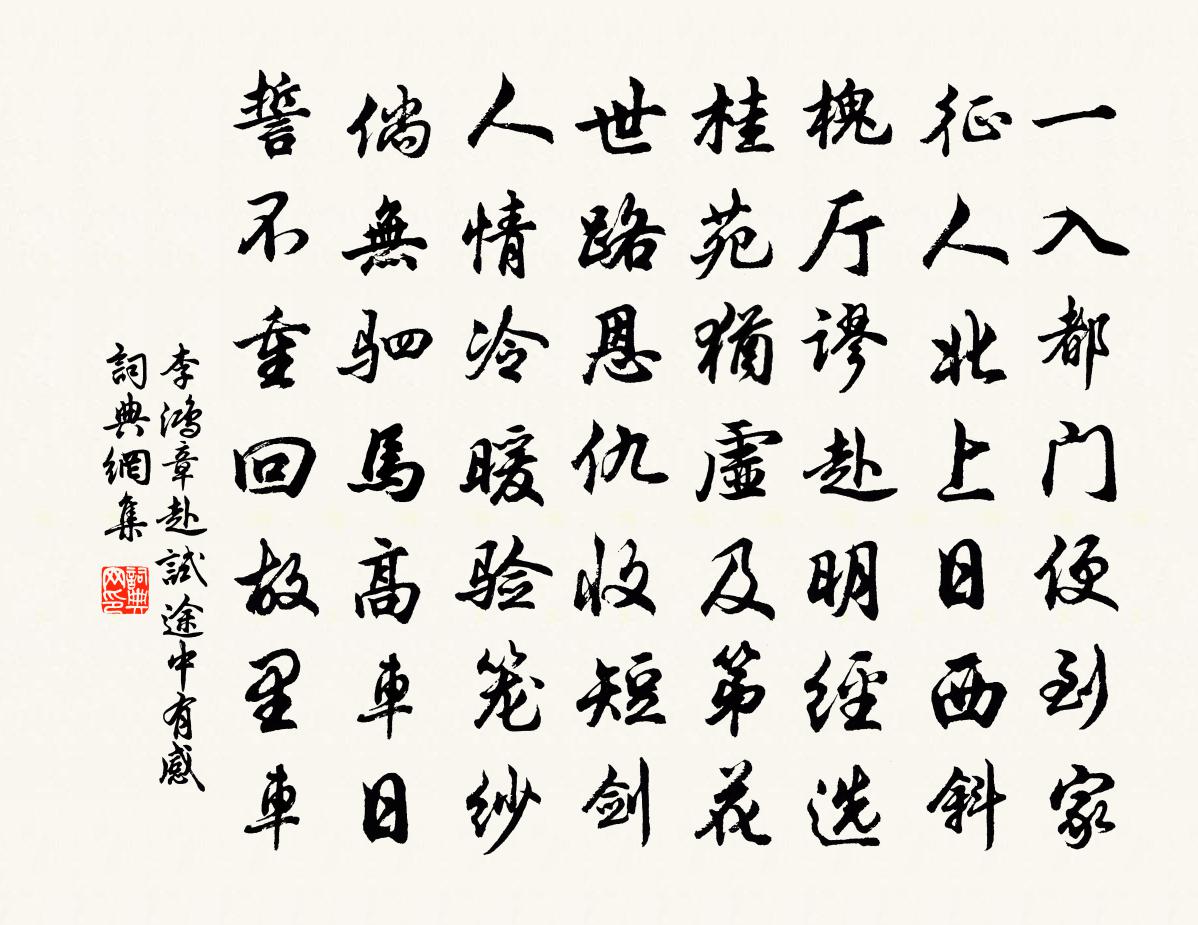 一入都门便到家
征人北上日西斜
槐厅谬赴明經选
桂苑猶虛及第花
世路恩仇收短剑
人情冷暖验笼纱
倘無驷馬高車日
誓不重回故里車
李鴻章赴試途中有感
詞典網集
詞典网印